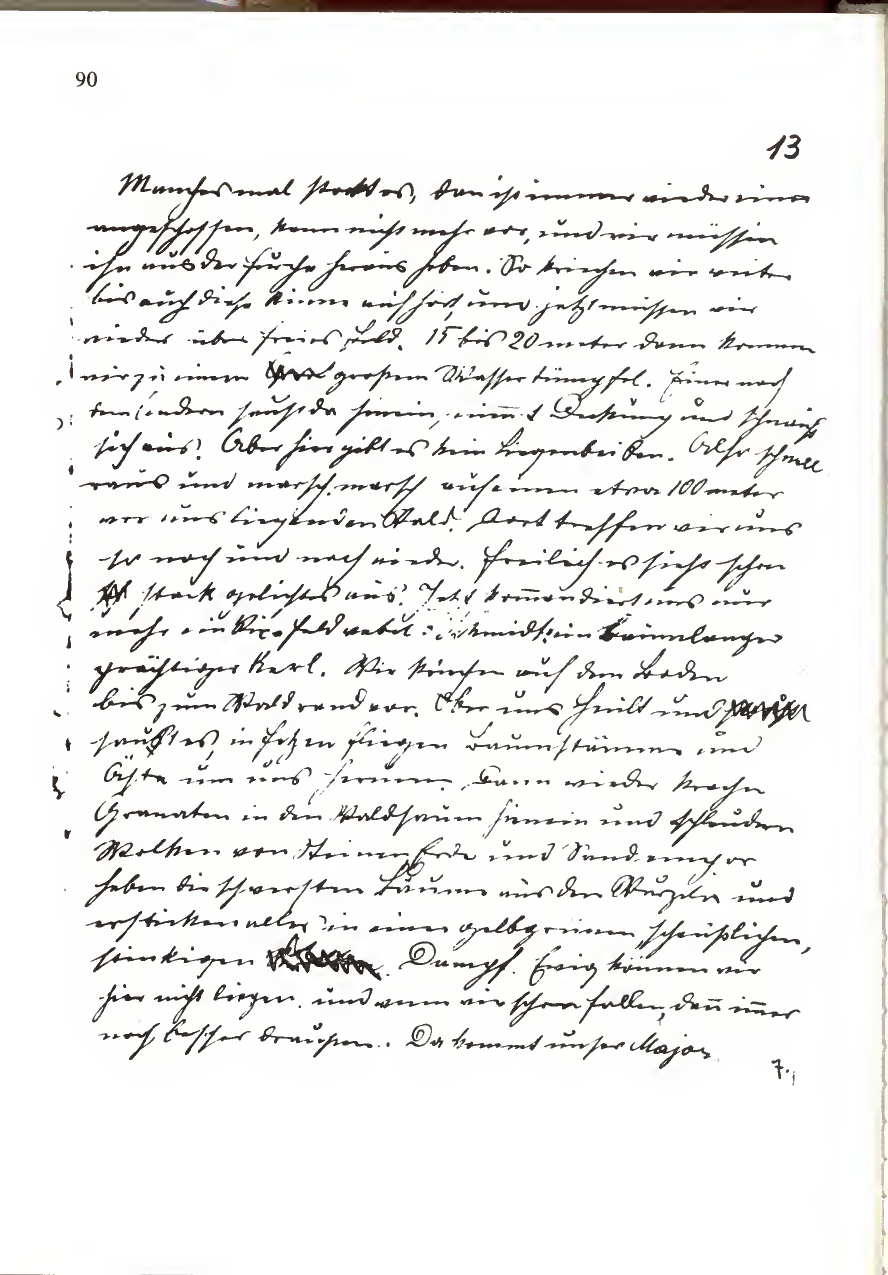 90
13
Manches mal stockt es, dan ist immer wieder einer
angeschossen, kann nicht mehr vor, und wir müssen
ihn aus der Furche heraus heben. So kriechen wir weiter
bis auch diese Rinne aufhört, und jetzt müssen wir
wieder über freies Feld. 15 bis 20 meter dann kommen
wir zu einem großem Wassertümpfel. Einer nach
dem andern saust da hinein, nimmt Deckung und schnauft
sich aus. Aber hier gibt es kein Liegenbleiben. Also schnell
raus und marsch, marsch auf einen etwa 100 meter
vor uns liegenden Wald. Dort treffen wir uns
so nach und nach wieder. Freilich es sieht schon
stark gelichtet aus. Jetzt kommandiert uns nur
mehr ein Vizefeldwebel: Schmidt: ein baumlanger
prächtiger Kerl. Wir kriechen auf dem Boden
bis zum Waldrand vor. Über uns heult und
saust es, in Fetzen fliegen Baumstämme und
Äste um uns herum. Dann wieder krachen
Granaten in den Waldsaum hinein und schleudern
Wolken von Steinen Erde und Sand empor
heben die schwersten Bäume aus den Wurzeln und
ersticken alles in einem gelbgrünen, scheußlichen,
stinkigen Dampf. Ewig können wir
hier nicht liegen und wenn wir schon fallen, dann immer
noch besser draußen. Da kommt unser Major
7.